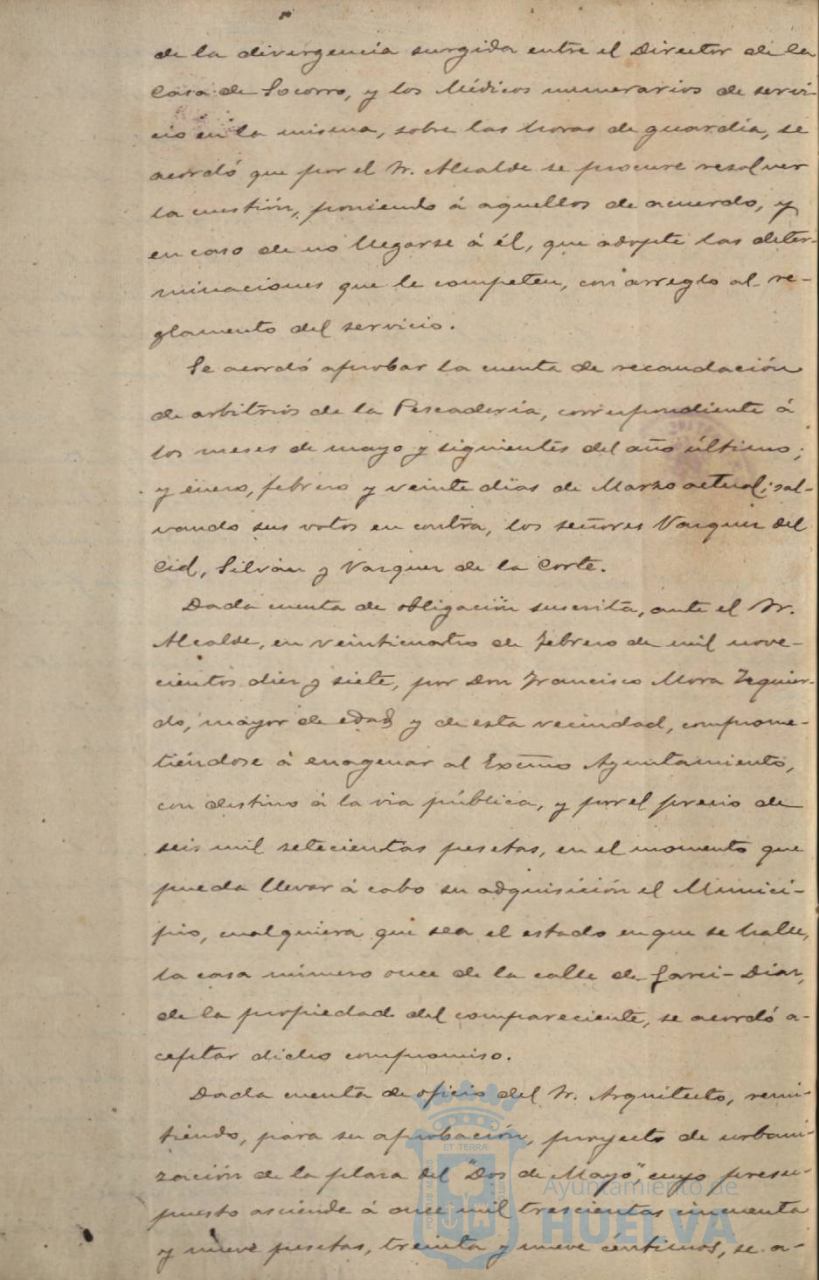 de la divergencia surgida entre el Director de la
Casa de Socorro, y los Médicos numerarios de servi-
cio en la misma, sobre las horas de guardia, se
acordó que por el Sr. Alcalde se procure resolver
la cuestión, poniendo á aquellos de acuerdo, y
en caso de no llegarse á él, que adopte las deter-
minaciones que le competen, con arreglo al re-
glamento del servicio.
Se acordó aprobar la cuenta de recaudación
de arbitrios de la Pescadería, correspondiente á
los meses de mayo y siguientes del año último;
y enero, febrero y veinte días de Marzo actual; sal-
vando sus votos en contra, los señores Vazquez del
Cid, Silván y Vazquez de la Corte.
Dada cuenta de obligación suscrita, ante el Sr.
Alcalde, en veinticuatro de Febrero de mil nove-
cientos diez y siete, por Don Francisco Mora Izquier-
do, mayor de edad y de esta vecindad, comprome-
tiéndose á enagenar al Excmo Ayuntamiento,
con destino á la via pública, y por el precio de
seis mil setecientas pesetas, en el momento que
pueda llevar á cabo su adquisición el Munici-
pio, cualquiera que sea el estado en que se halle,
la casa número once de la calle de Garci-Diaz,
de la propiedad del compareciente, se acordó a-
ceptar dicho compromiso.
Dada cuenta de oficio del Sr. Arquitecto, remi-
tiendo, para su aprobación, proyecto de urbani-
zación de la plaza del "Dos de Mayo", cuyo presu-
puesto asciende á once mil trescientas cincuenta
y nueve pesetas, treinta y nueve centimos, se a-
ET TERRA
Ayuntamiento de
HUELVA